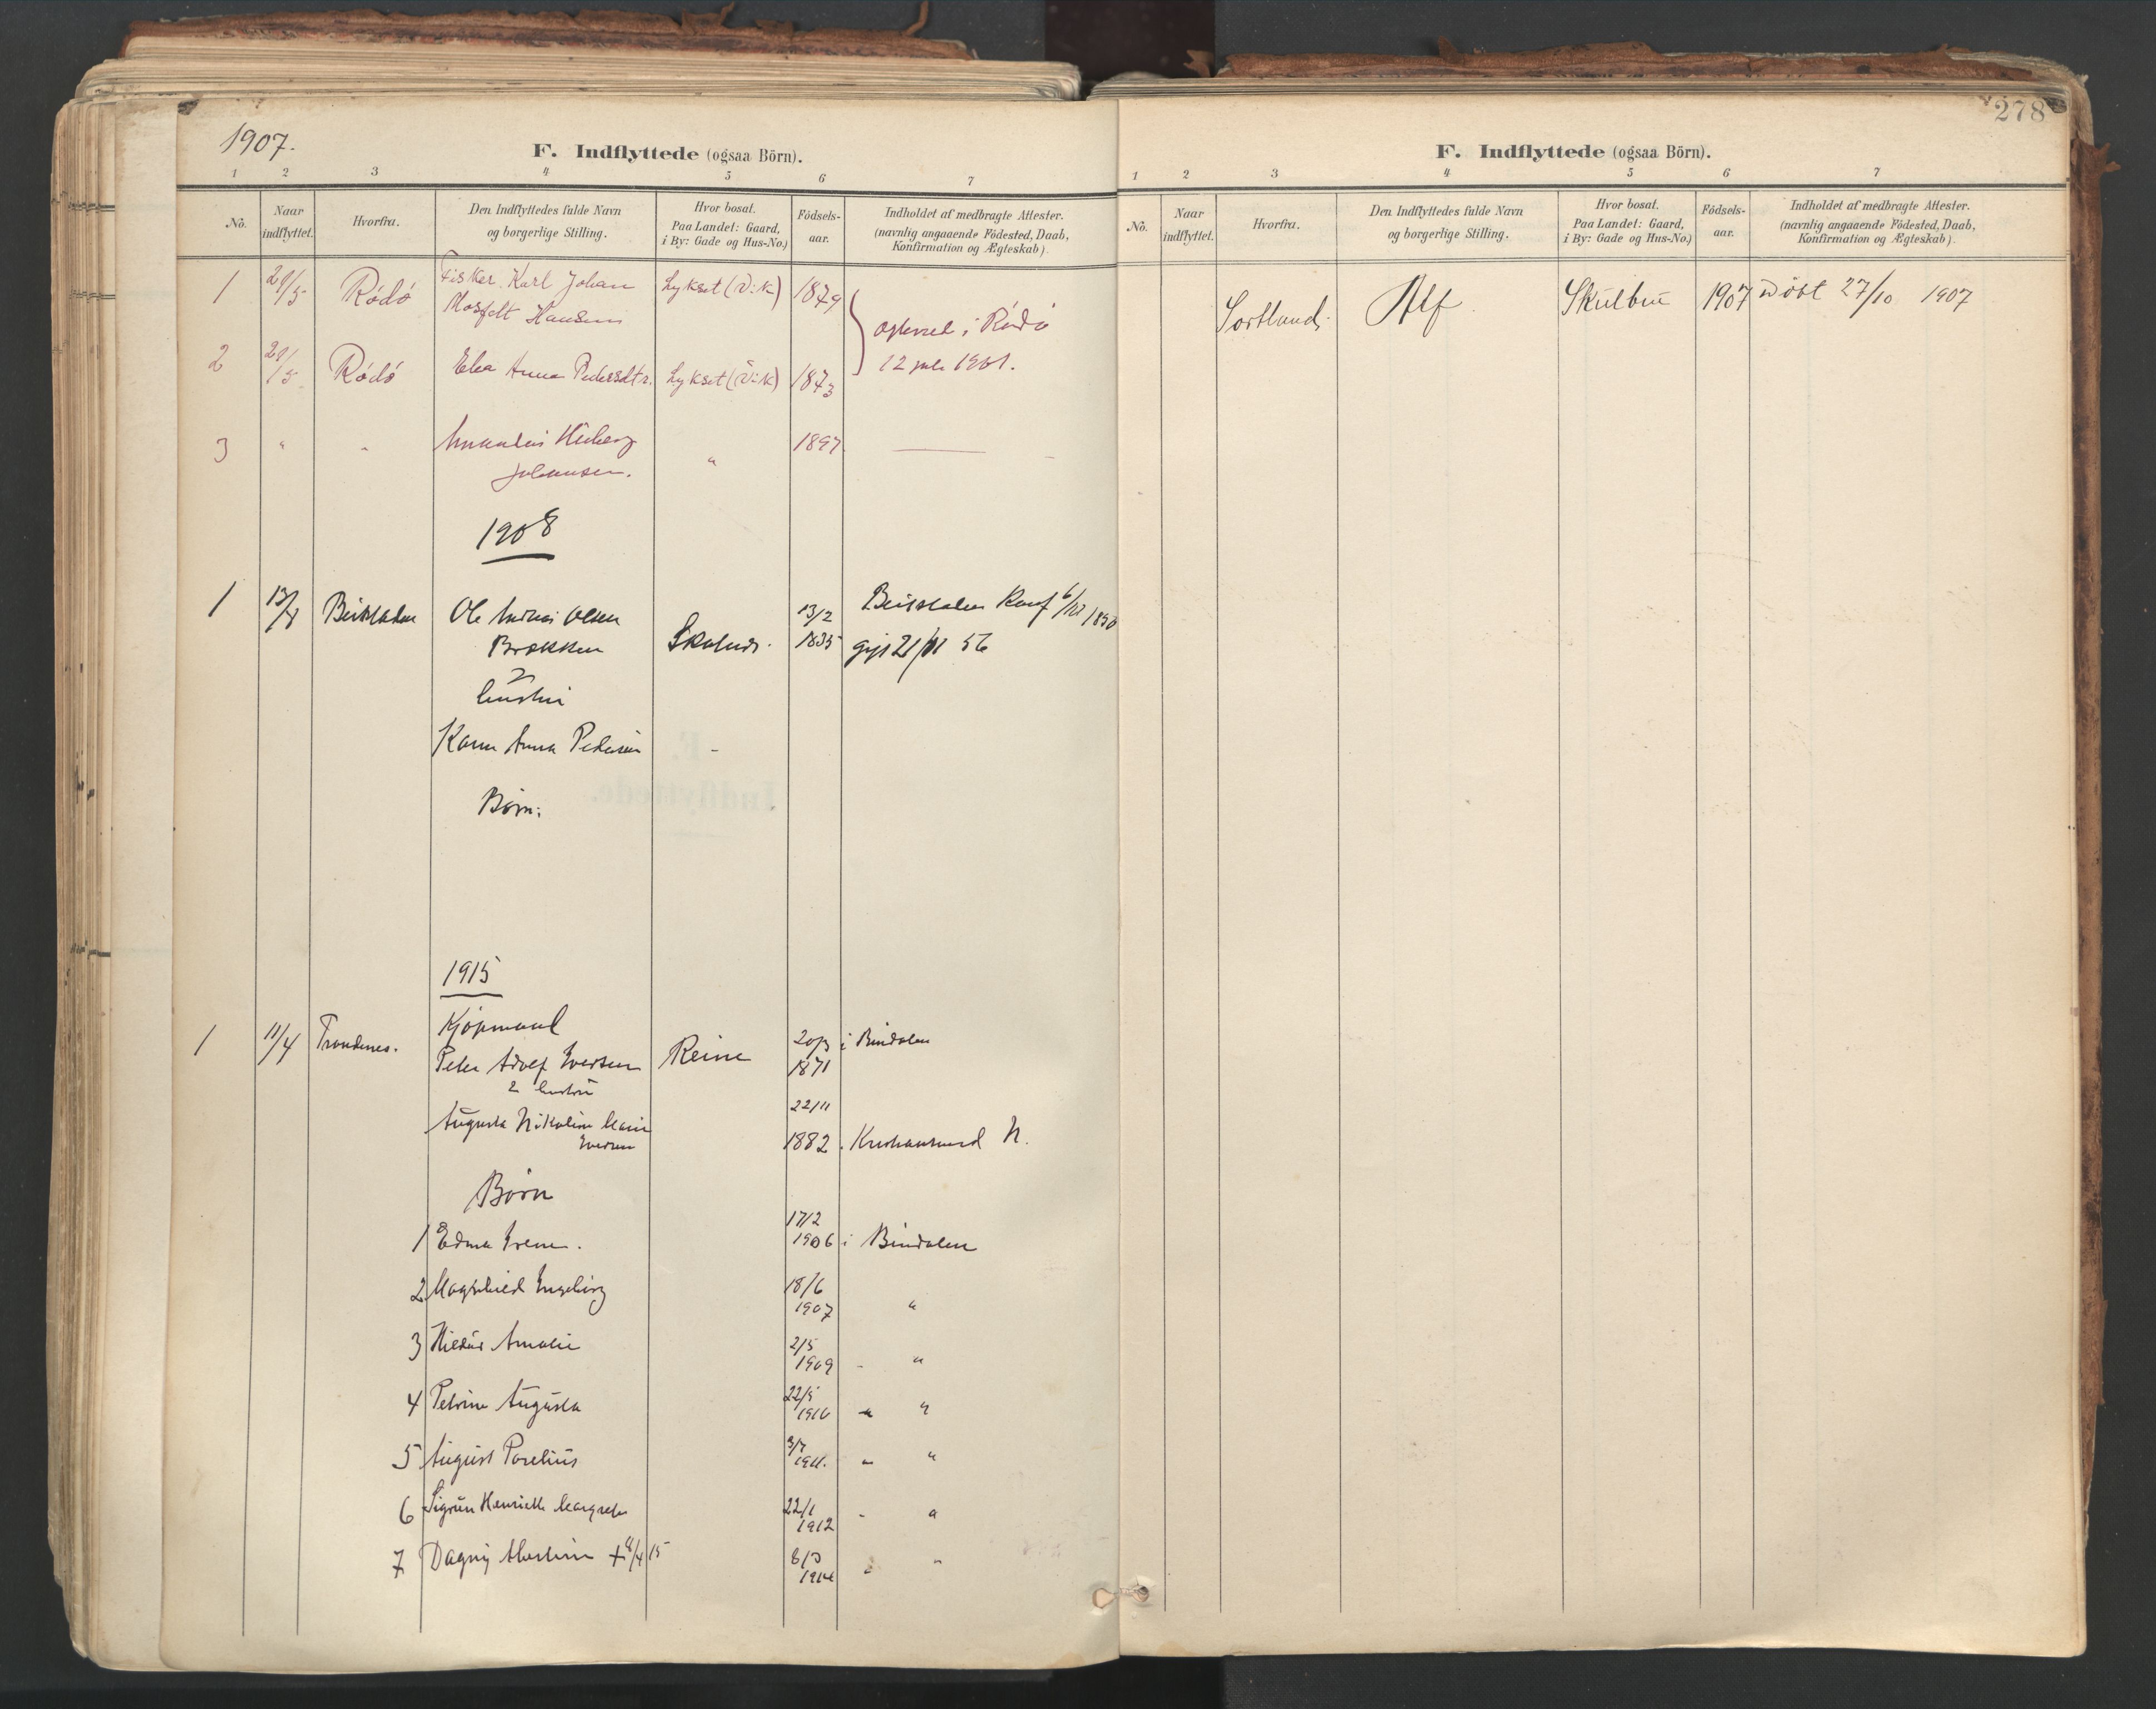 1907.
F. Indflyttede (ogsaa Börn).
1 2 3 4 5 6 7
No.
Naar indflyttet.
Hvorfra.
Den Indflyttedes fulde Navn
og borgerlige Stilling.
Hvor bosat.
Paa Landet: Gaard,
i By: Gade og Hus-No.)
Födsels-
aar.
Indholdet af medbragte Attester.
(navnlig angaaende Födested, Daab,
Konfirmation og Ægteskab).
1 29/5 Rödö Fisker Karl Johan Lykset (Vik) 1879
Mosfelt Hansen
i Rödö
2 29/5 Rödö Elea Anna Pedersdtr. Lykset (Vik) 1873
12 1901.
3 " " " 1897
Johansen.
1908
1 13/8 Beitstaden Ole Andreas Olsen 13/2 Beitstaden Konf 6/10 1850
Brækken 1835 gift 21/11 56
2
hustru
Karen Anna Pedersen
Börn:
1915
1 11/4 Trondenes. Kjöpmand
Peter Adolf Iversen Reine 20/3 1871 i Bindalen
2 hustru
Augusta Nikoline Marie 22/11
Iversen 1882 . Kristiansund N.
Börn
17/2
1 Edna Irene. 1906 i Bindalen
2 Magnhild Ingeborg 18/6
1907 "
3 Hildur Amalie 2/5
1909 - "
4 Petrine Augusta 22/5
1910 " "
5 August Parelius 3/7
1911. " "
6 Sigrun Henriette Margrete 22/1
1912 - "
7 Dagny + 8/4 15 8/3
1914 " "
278
F. Indflyttede (ogsaa Börn).
1 2 3 4 5 6 7
No.
Naar indflyttet.
Hvorfra.
Den Indflyttedes fulde Navn
og borgerlige Stilling.
Hvor bosat.
Paa Landet: Gaard,
i By: Gade og Hus-No.)
Födsels-
aar.
Indholdet af medbragte Attester.
(navnlig angaaende Födested, Daab,
Konfirmation og Ægteskab).
Sortland. Alf Skulbru 1907 döbt 27/10 1907
F.
Indflyttede.